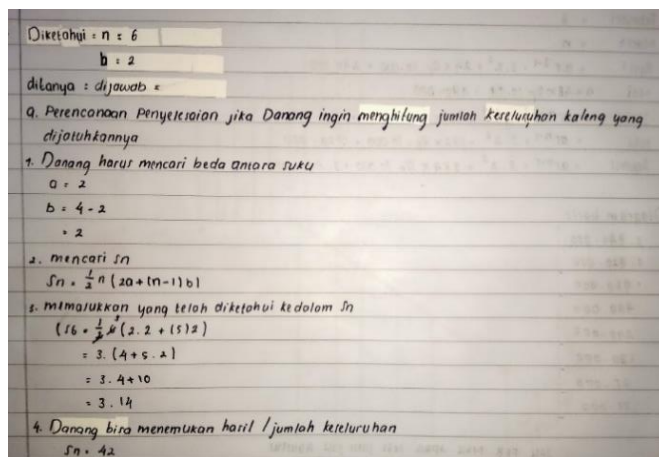 Diketahui : n = 6
b = 2
ditanya : dijawab =
a. Perencanaan Penyelesaian jika Danang ingin menghitung jumlah keseluruhan kaleng yang
dijatuhkannya
1. Danang harus mencari beda antara suku
a = 2
b = 4 - 2
= 2
2. mencari Sn
Sn = 1/2 n (2a + (n-1) b)
3. memasukkan yang telah diketahui kedalam Sn
(S6 = 1/2 6 (2.2 + (5)2)
= 3. (4 + 5 . 2)
= 3 . 4 + 10
= 3 . 14
4. Danang bisa menemukan hasil / jumlah keseluruhan
Sn = 42